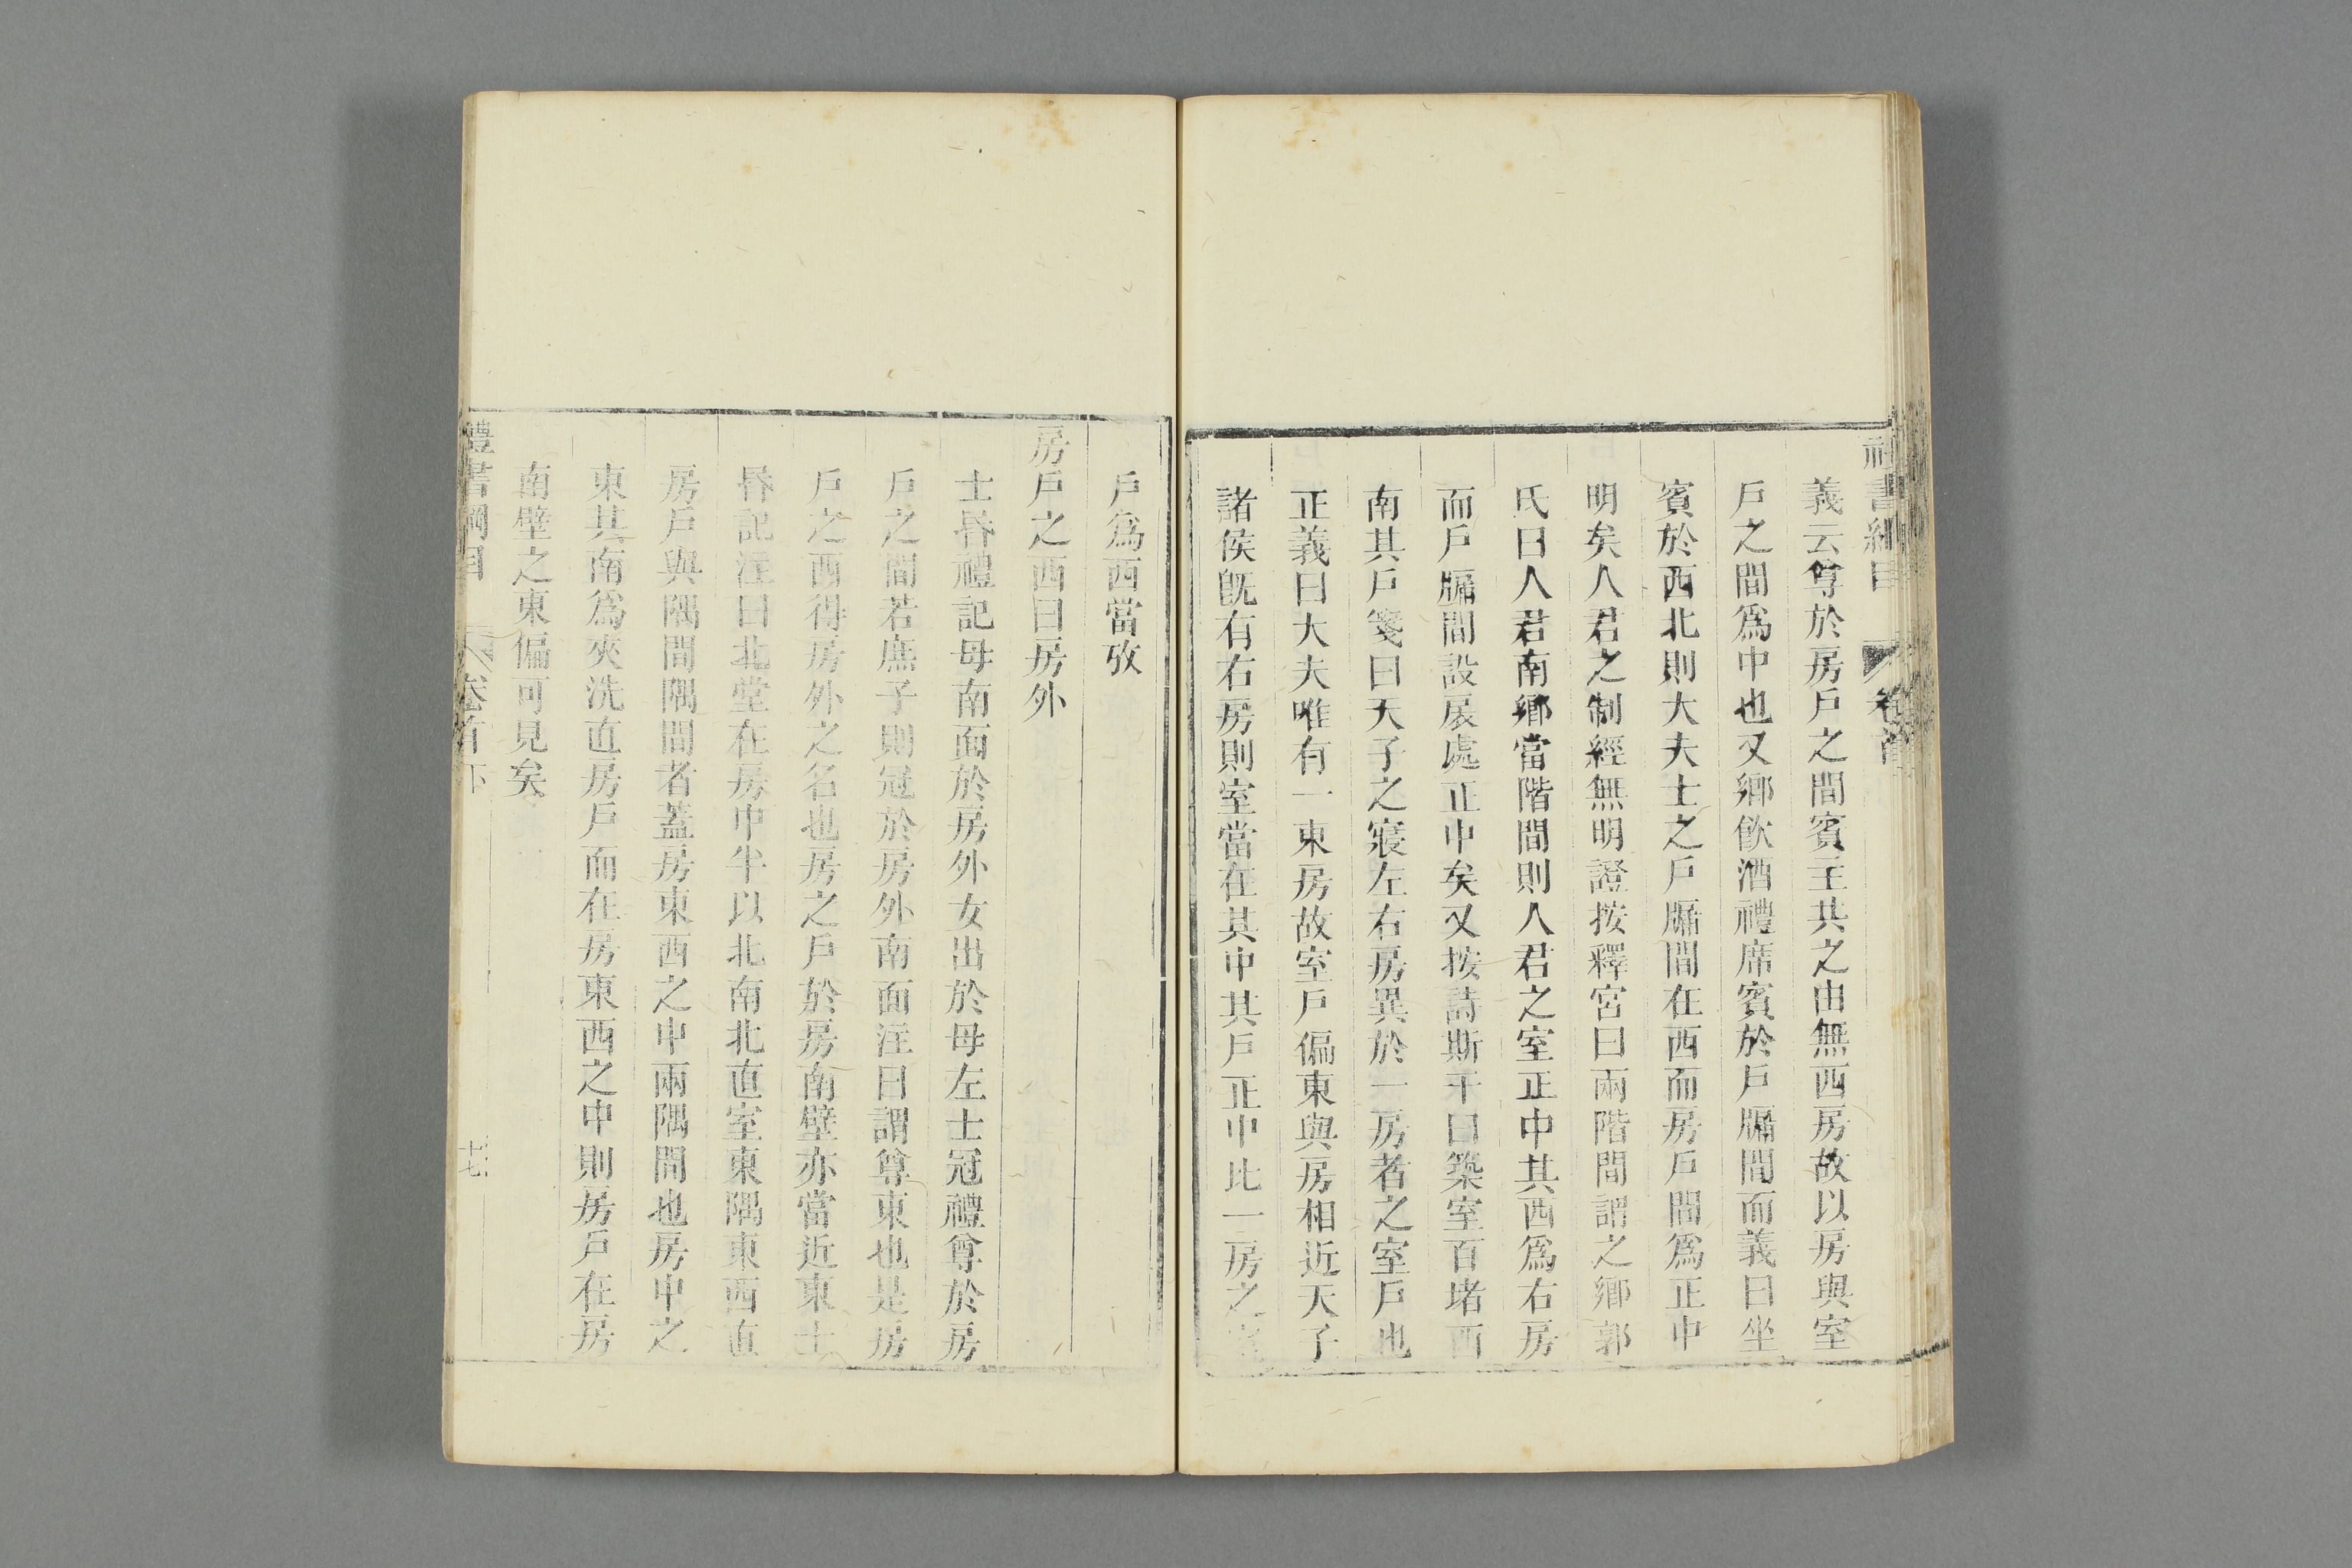 禮書綱目 卷首
義云尊於房戶之間賓主共之由無西房故以房與室
戶之間爲中也又鄉飮酒禮席賓於戶牖間而義曰坐
賓於西北則大夫士之戶牖間在西而房戶間爲正中
明矣人君之制經無明證按釋宮曰兩階間謂之鄉郭
氏曰人君南鄉當階間則人君之室正中其西爲右房
而戶牖間設扆處正中矣又按詩斯干曰築室百堵西
南其戶箋曰天子之寢左右房異於一房者之室戶也
正義曰大夫唯有一東房故室戶偏東與房相近天子
諸侯旣有右房則室當在其中其戶正中比一房之室
戶爲西當攷
房戶之西曰房外
士昏禮記母南面於房外女出於母左士冠禮尊於房
戶之間若庶子則冠於房外南面注曰謂尊東也是房
戶之西得房外之名也房之戶於房南壁亦當近東士
昏記注曰北堂在房中半以北南北直室東隅東西直
房戶與隅間隅間者蓋房東西之中兩隅間也房中之
東其南爲夾洗直房戶而在房東西之中則房戶在房
南壁之東偏可見矣
禮書綱目 卷首下 十七